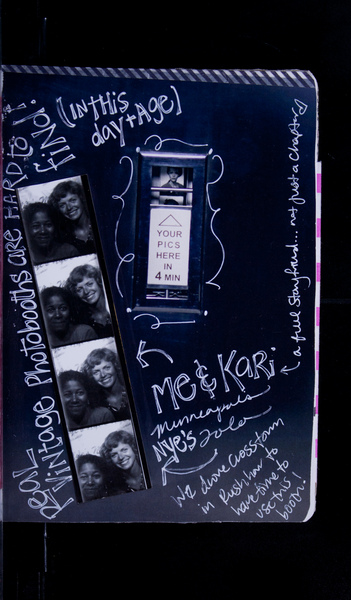 Real Vintage Photobooths are HARD to find!
[IN this
day + Age]
YOUR
PICS
HERE
IN
4 MIN
Me & Kari
Minneapolis
NYE's
We drove crosstown
in Rush hour to
have time to
use this
booth!
a full story ... not just a chapter